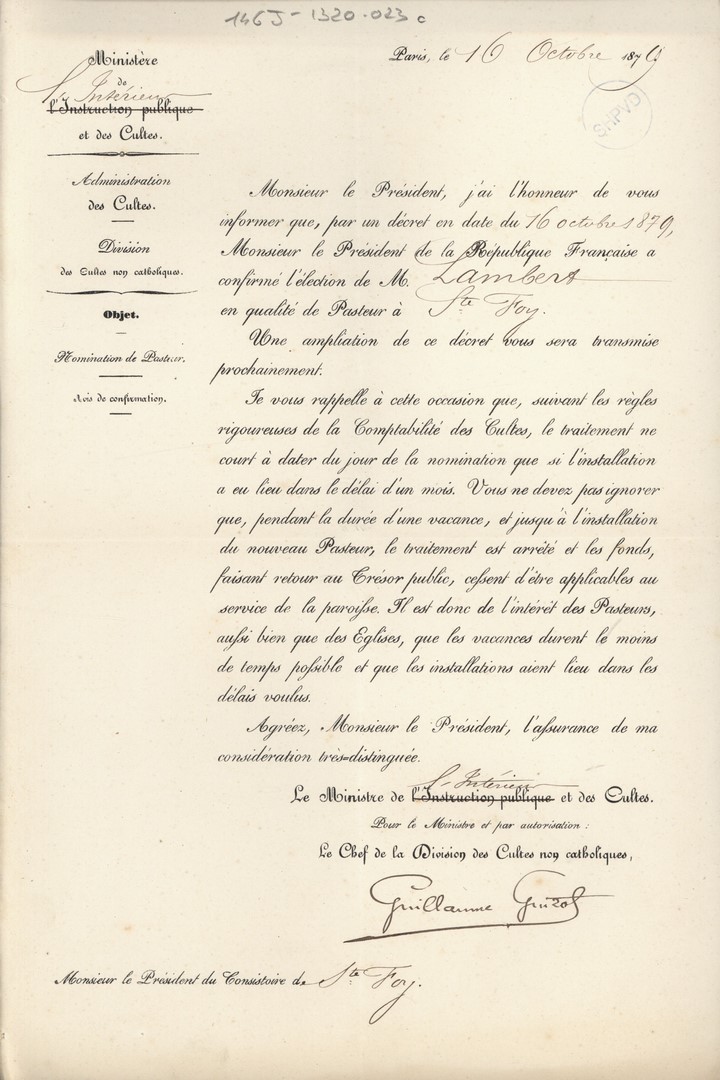 146J-1320.023 c
Ministère
de
l'Intérieur
l'Instruction publique
et des Cultes.
Administration
des Cultes.
Division
des Cultes non catholiques.
Objet.
Nomination de Pasteur.
Avis de confirmation.
Paris, le 16 Octobre 1879
SHPVD
Monsieur le Président, j'ai l'honneur de vous
informer que, par un décret en date du 16 octobre 1879,
Monsieur le Président de la République Française a
confirmé l'élection de M. Lambert
en qualité de Pasteur à Ste Foy.
Une ampliation de ce décret vous sera transmise
prochainement.
Je vous rappelle à cette occasion que, suivant les règles
rigoureuses de la Comptabilité des Cultes, le traitement ne
court à dater du jour de la nomination que si l'installation
a eu lieu dans le délai d'un mois. Vous ne devez pas ignorer
que, pendant la durée d'une vacance, et jusqu'à l'installation
du nouveau Pasteur, le traitement est arrêté et les fonds,
faisant retour au Trésor public, cessent d'être applicables au
service de la paroisse. Il est donc de l'intérêt des Pasteurs,
aussi bien que des Eglises, que les vacances durent le moins
de temps possible et que les installations aient lieu dans les
délais voulus.
Agréez, Monsieur le Président, l'assurance de ma
considération très-distinguée.
l'Intérieur
Le Ministre de l'Instruction publique et des Cultes.
Pour le Ministre et par autorisation :
Le Chef de la Division des Cultes non catholiques,
Guillaume Guizot
Monsieur le Président du Consistoire de Ste Foy.